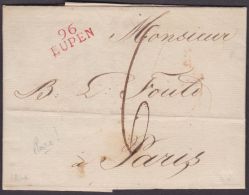 96
EUPEN
Monsieur
B. L. Fould
6
à Paris